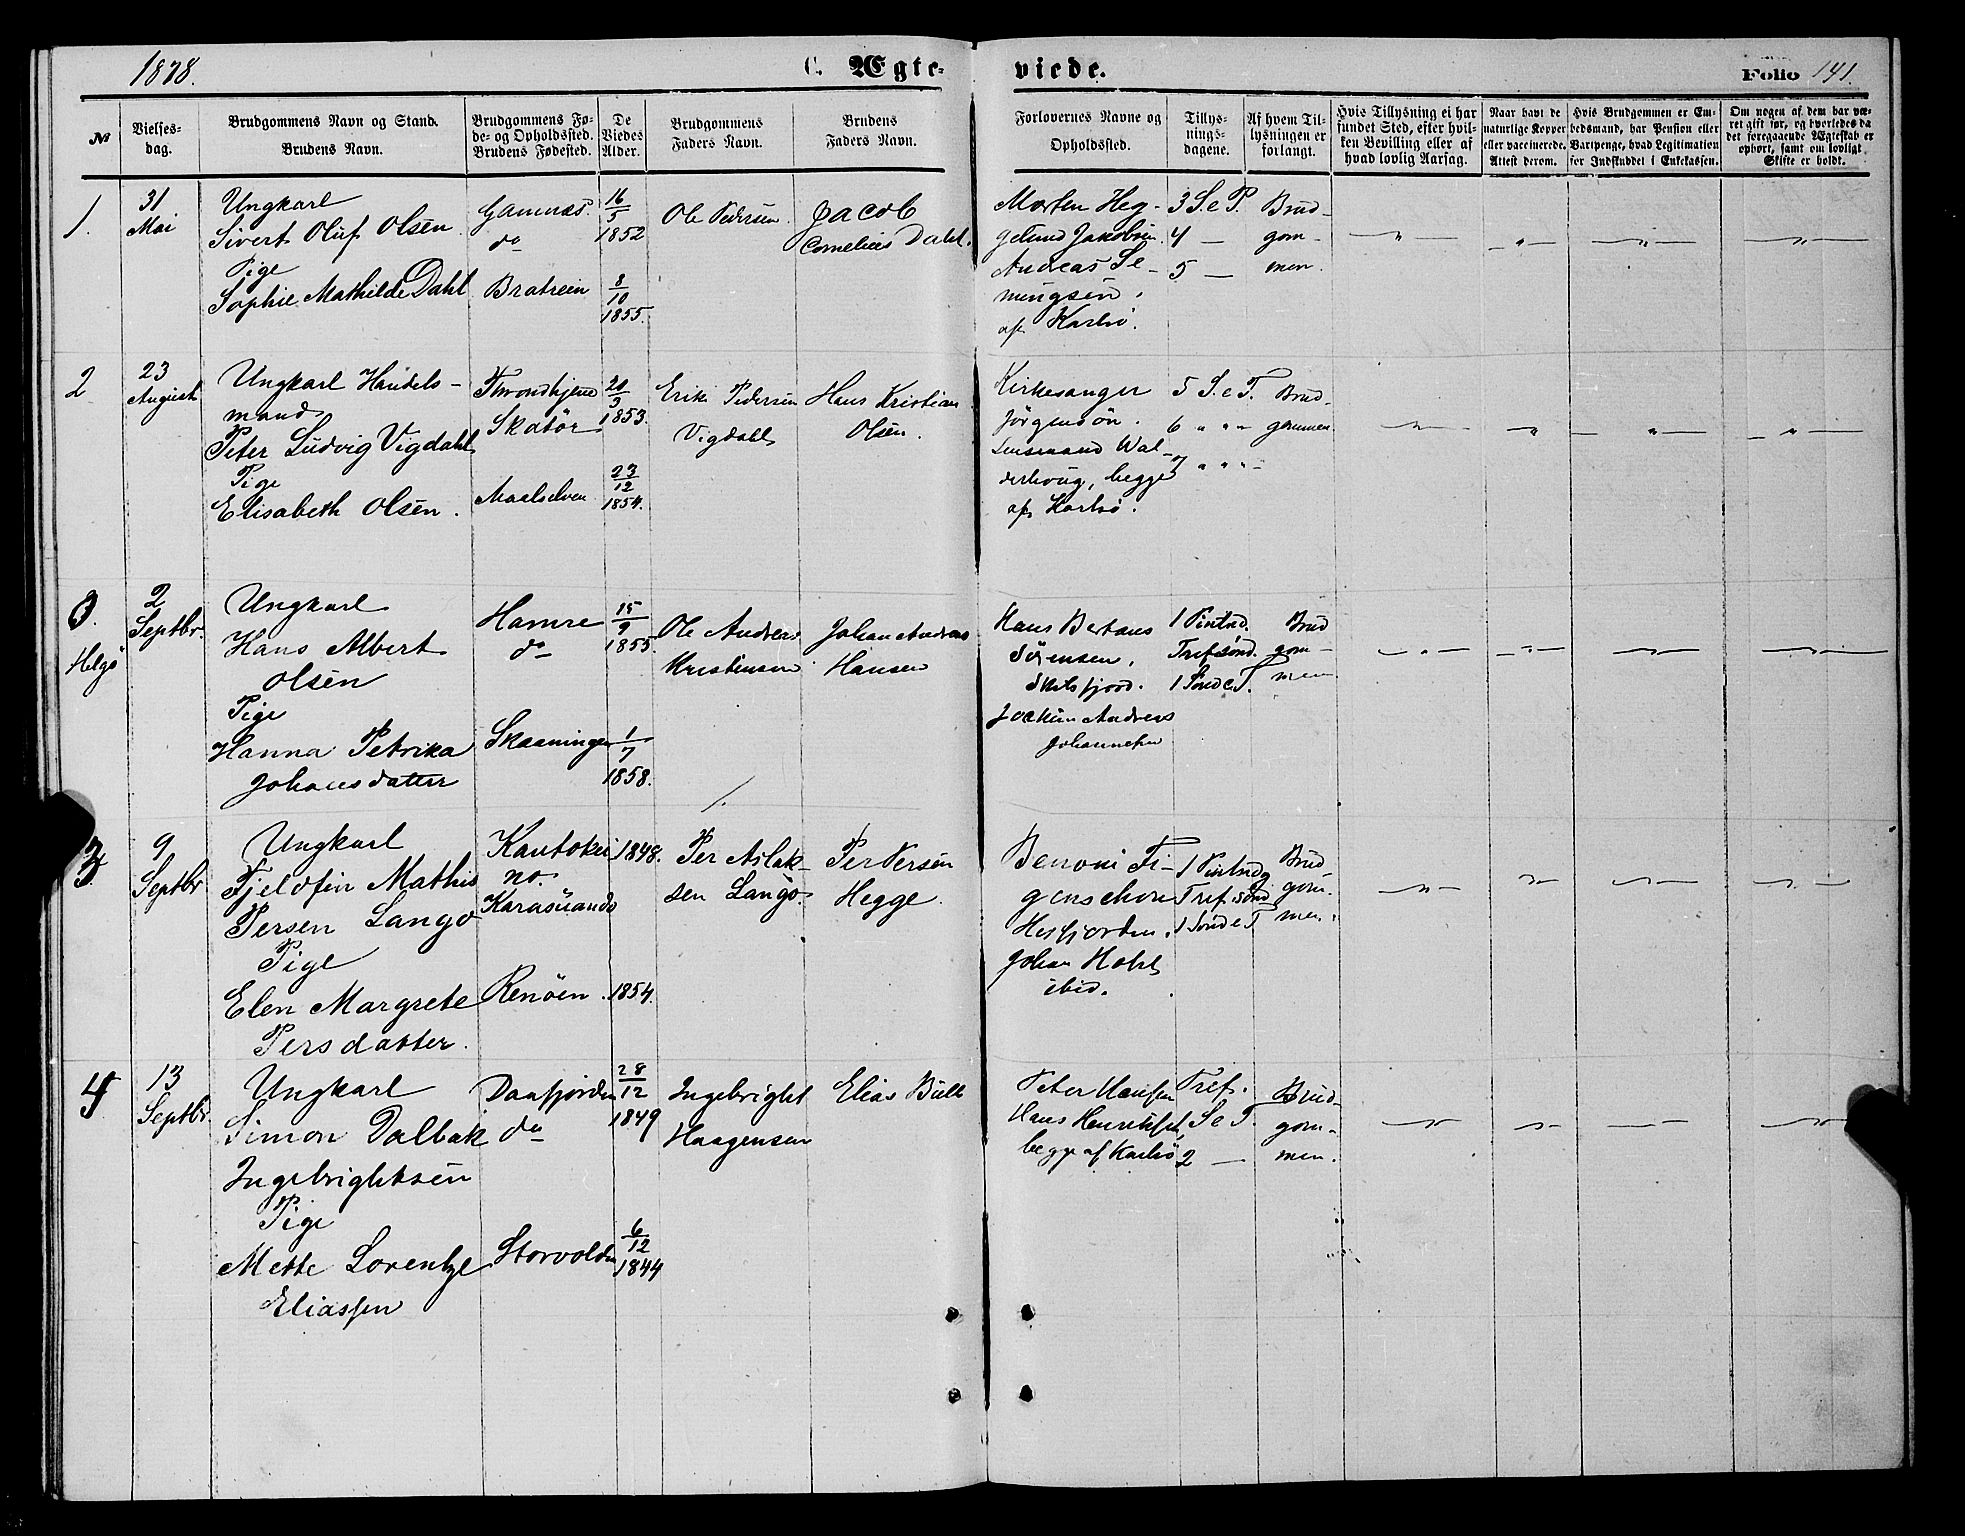 1878.
C. Ægte-
viede.
Folio 141.
№
Vielses-
dag.
Brudgommens Navn og Stand.
Brudens Navn.
Brudgommens Fø-
de- og Opholdssted.
Brudens Fødested.
De
Viedes
Alder.
Brudgommens
Faders Navn.
Brudens
Faders Navn.
Forlovernes Navne og
Opholdssted.
Tillys-
nings-
dagene.
Af hvem Til-
lysningen er
forlangt.
Hvis Tillysning ei har
fundet Sted, efter hvil-
ken Bevilling eller af
hvad lovlig Aarsag.
Naar havt de
naturlige Kopper
eller vaccinerede.
Attest derom.
Hvis Brudgommen er Em-
bedsmand, har Pension eller
Vartpenge, hvad Legitimation
for Indskuddet i Enkekassen.
Om nogen af dem har væ-
ret gift før, og hvorledes da
det foregaaende Ægteskab er
ophørt, samt om lovligt
Skifte er holdt.
1.
31
Mai
Ungkarl
Sivert Oluf Olsen.
Pige
Sophie Mathilde Dahl
Gamnæs.
do
Bratrein
16
5
1852
8
10
1855.
Ole Pedersen.
Jacob
Cornelius Dahl.
Morten Heg-
gelund Jakobsen
Andreas Se-
mingsen.
af Karlsö.
3 S. e P.
4 —
5 —
Brud-
gom-
men.
2
23
August
Ungkarl Handels-
mand
Peter Ludvig Vigdahl
Pige
Elisabeth Olsen.
Throndhjem
Skatör
Maalselven
20
9
1853.
23
12
1854.
Erik Pedersen
Vigdahl
Hans Kristian
Olsen.
Kirkesanger
Jörgensön.
Lensmand Wal-
derhoug, begge
af Karlsö.
5 S. e T.
6 " " "
7 " " "
Brud-
gommen
0.
Helgö
2
Septbr.
Ungkarl
Hans Albert
Olsen
Pige
Hanna Petrika
Johansdatter
Hamre
do
Skaaningen
15
9
1855.
1
7
1858.
Ole Andreas
Kristensen
Johan Andreas
Hansen
Hans Bertaus
Sörensen.
Skolsfjord.
Jochim Andreas
Johannesen
1 Pintsd.
Tref. sönd.
1 Sönd e T.
Brud
gom-
men
3
9
Septbr
Ungkarl
Fjeldfin Mathis
Persen Lango
Pige
Elen Margrete
Persdatter.
Kautokei
no.
Karasuando
Renöen.
1848.
1854.
Per Aslak-
sen Lango.
Per Persen
Hegge.
Benoni Fi-
genschou
Hesfjorden.
Johan Hotel
ibid.
1 Pintsdg
Tref. sönd
1 Sönd e T
Brud-
gom-
men.
4
13
Septbr.
Ungkarl
Simon Dalbak
Ingebrightsen
Pige
Mette Lorentze
Eliassen
Daafjorden
do
Storvolden
28
12
1849
6
12
1844
Ingebright
Haagensen
Elias Bull
Peter Hansen
Hans Henriksen,
begge af Karlsö
Tref.
S e T.
2 —
Brud-
gom-
men.